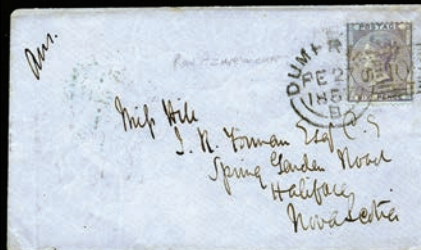 POSTAGE
DUMFR
FE 2
185
B
Ans.
Miss Hill
J. R. Forman Esqr C.E
Spring Garden Road
Halifax
Nova Scotia